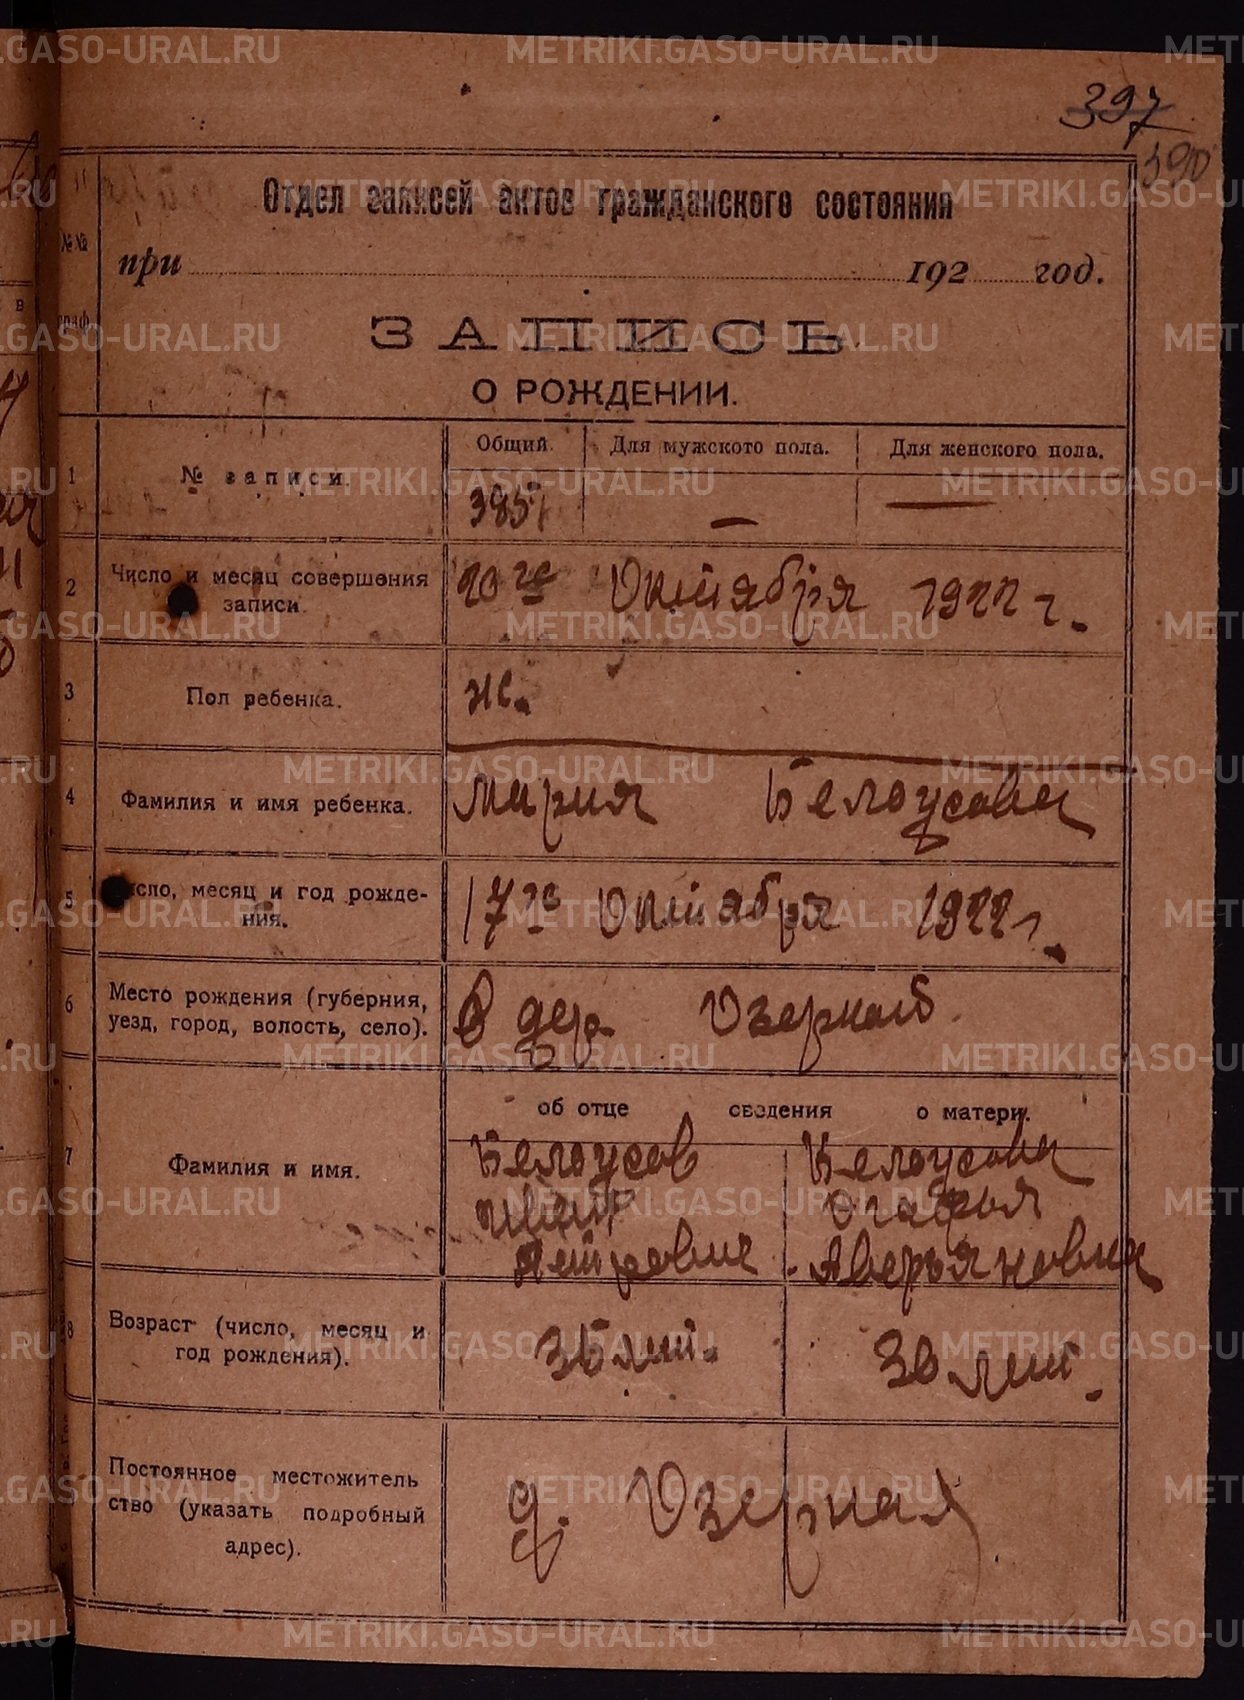 397
390
№№
граф.
Отдел записей актов гражданского состояния
при 192 год.
ЗАПИСЬ
О РОЖДЕНИИ.
Общий. Для мужского пола. Для женского пола.
1 № записи. 385 — —
2 Число и месяц совершения записи. 20го Октября 1922 г.
3 Пол ребенка. ж.
4 Фамилия и имя ребенка. Мария Белоусова
5 Число, месяц и год рождения. 17го Октября 1922 г.
6 Место рождения (губерния,
уезд, город, волость, село). в дер. Озерной
об отце сведения о матери.
7 Фамилия и имя. Белоусов Белоусова
Агафья
Петрович Аверьяновна
8 Возраст (число, месяц и
год рождения). 36 лет. 30 лет.
Постоянное местожитель
ство (указать подробный
адрес). д. Озерная
METRIKI.GASO-URAL.RU